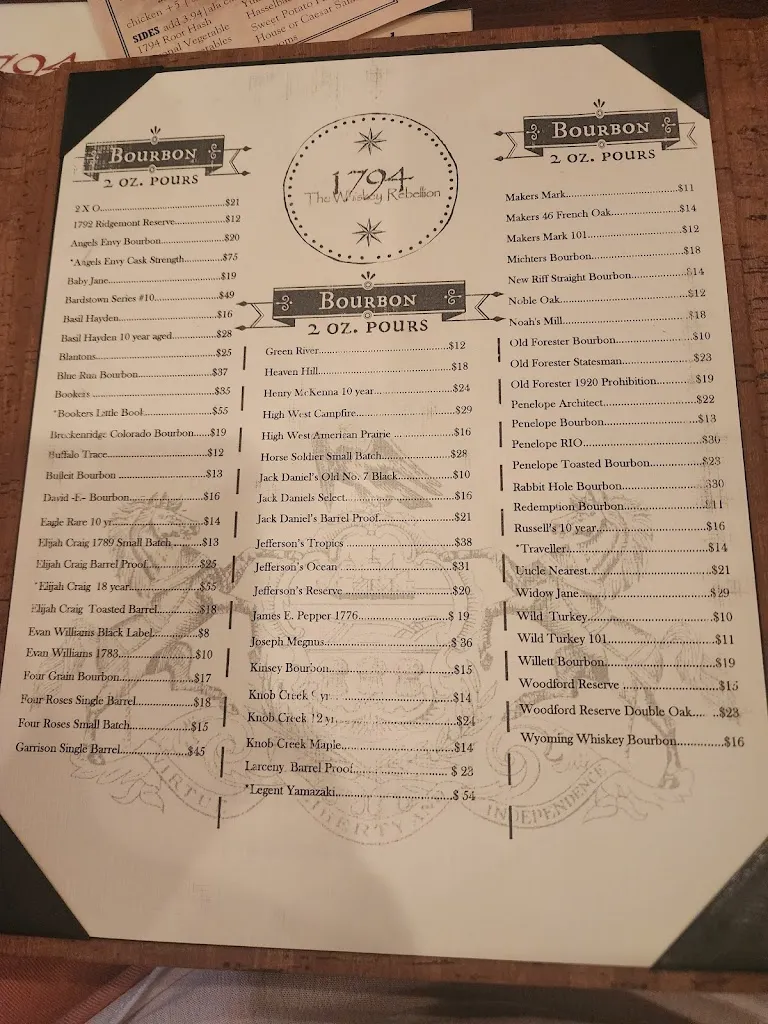 chicken +5
SIDES add 3.94 | ala
1794 Root Hash
Vegetable
Sweet Potato
House or Caesar Salad
1794
BOURBON
2 OZ. POURS
2 X O $21
1792 Ridgemont Reserve $12
Angels Envy Bourbon $20
*Angels Envy Cask Strength $75
Baby Jane $19
Bardstown Series #10 $49
Basil Hayden $16
Basil Hayden 10 year aged $28
Blantons $25
Blue Run Bourbon $37
Bookers $35
*Bookers Little Book $55
Breckenridge Colorado Bourbon $19
Buffalo Trace $12
Bulleit Bourbon $13
David -E- Bourbon $16
Eagle Rare 10 yr $14
Elijah Craig 1789 Small Batch $13
Elijah Craig Barrel Proof $25
*Elijah Craig 18 year $55
Elijah Craig Toasted Barrel $18
Evan Williams Black Label $8
Evan Williams 1783 $10
Four Grain Bourbon $17
Four Roses Single Barrel $18
Four Roses Small Batch $15
Garrison Single Barrel $45
1794
The Whiskey Rebellion
BOURBON
2 OZ. POURS
Green River $12
Heaven Hill $18
Henry McKenna 10 year $24
High West Campfire $29
High West American Prairie ... $16
Horse Soldier Small Batch $28
Jack Daniel's Old No. 7 Black $10
Jack Daniels Select $16
Jack Daniel's Barrel Proof $21
Jefferson's Tropics $38
Jefferson's Ocean $31
Jefferson's Reserve $20
James E. Pepper 1776 $ 19
Joseph Megnus $ 36
Kinsey Bourbon $15
Knob Creek yr $14
Knob Creek 12 yr $24
Knob Creek Maple $14
Larceny Barrel Proof $ 23
*Legent Yamazaki $ 54
BOURBON
2 OZ. POURS
Makers Mark $11
Makers 46 French Oak $14
Makers Mark 101 $12
Michters Bourbon $18
New Riff Straight Bourbon $14
Noble Oak $12
Noah's Mill $18
Old Forester Bourbon $10
Old Forester Statesman $23
Old Forester 1920 Prohibition $19
Penelope Architect $22
Penelope Bourbon $13
Penelope RIO $36
Penelope Toasted Bourbon $23
Rabbit Hole Bourbon $30
Redemption Bourbon $11
Russell's 10 year $16
*Traveller $14
Uncle Nearest $21
Widow Jane $29
Wild Turkey $10
Wild Turkey 101 $11
Willett Bourbon $19
Woodford Reserve $15
Woodford Reserve Double Oak $23
Wyoming Whiskey Bourbon $16
VIRTUE LIBERTY AND INDEPENDENCE